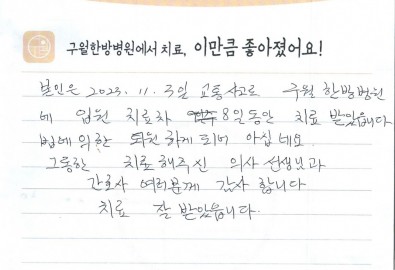 구월한방병원에서 치료, 이만큼 좋아졌어요!
본인은 2023. 11. 3일 교통사고로 구월 한방병원
에 입원 치료차 8일동안 치료 받았습니다
법에 의한 퇴원 하게 되어 아쉽네요.
그동안 치료해주신 의사 선생님과
간호사 여러분께 감사 합니다
치료 잘 받았읍니다.